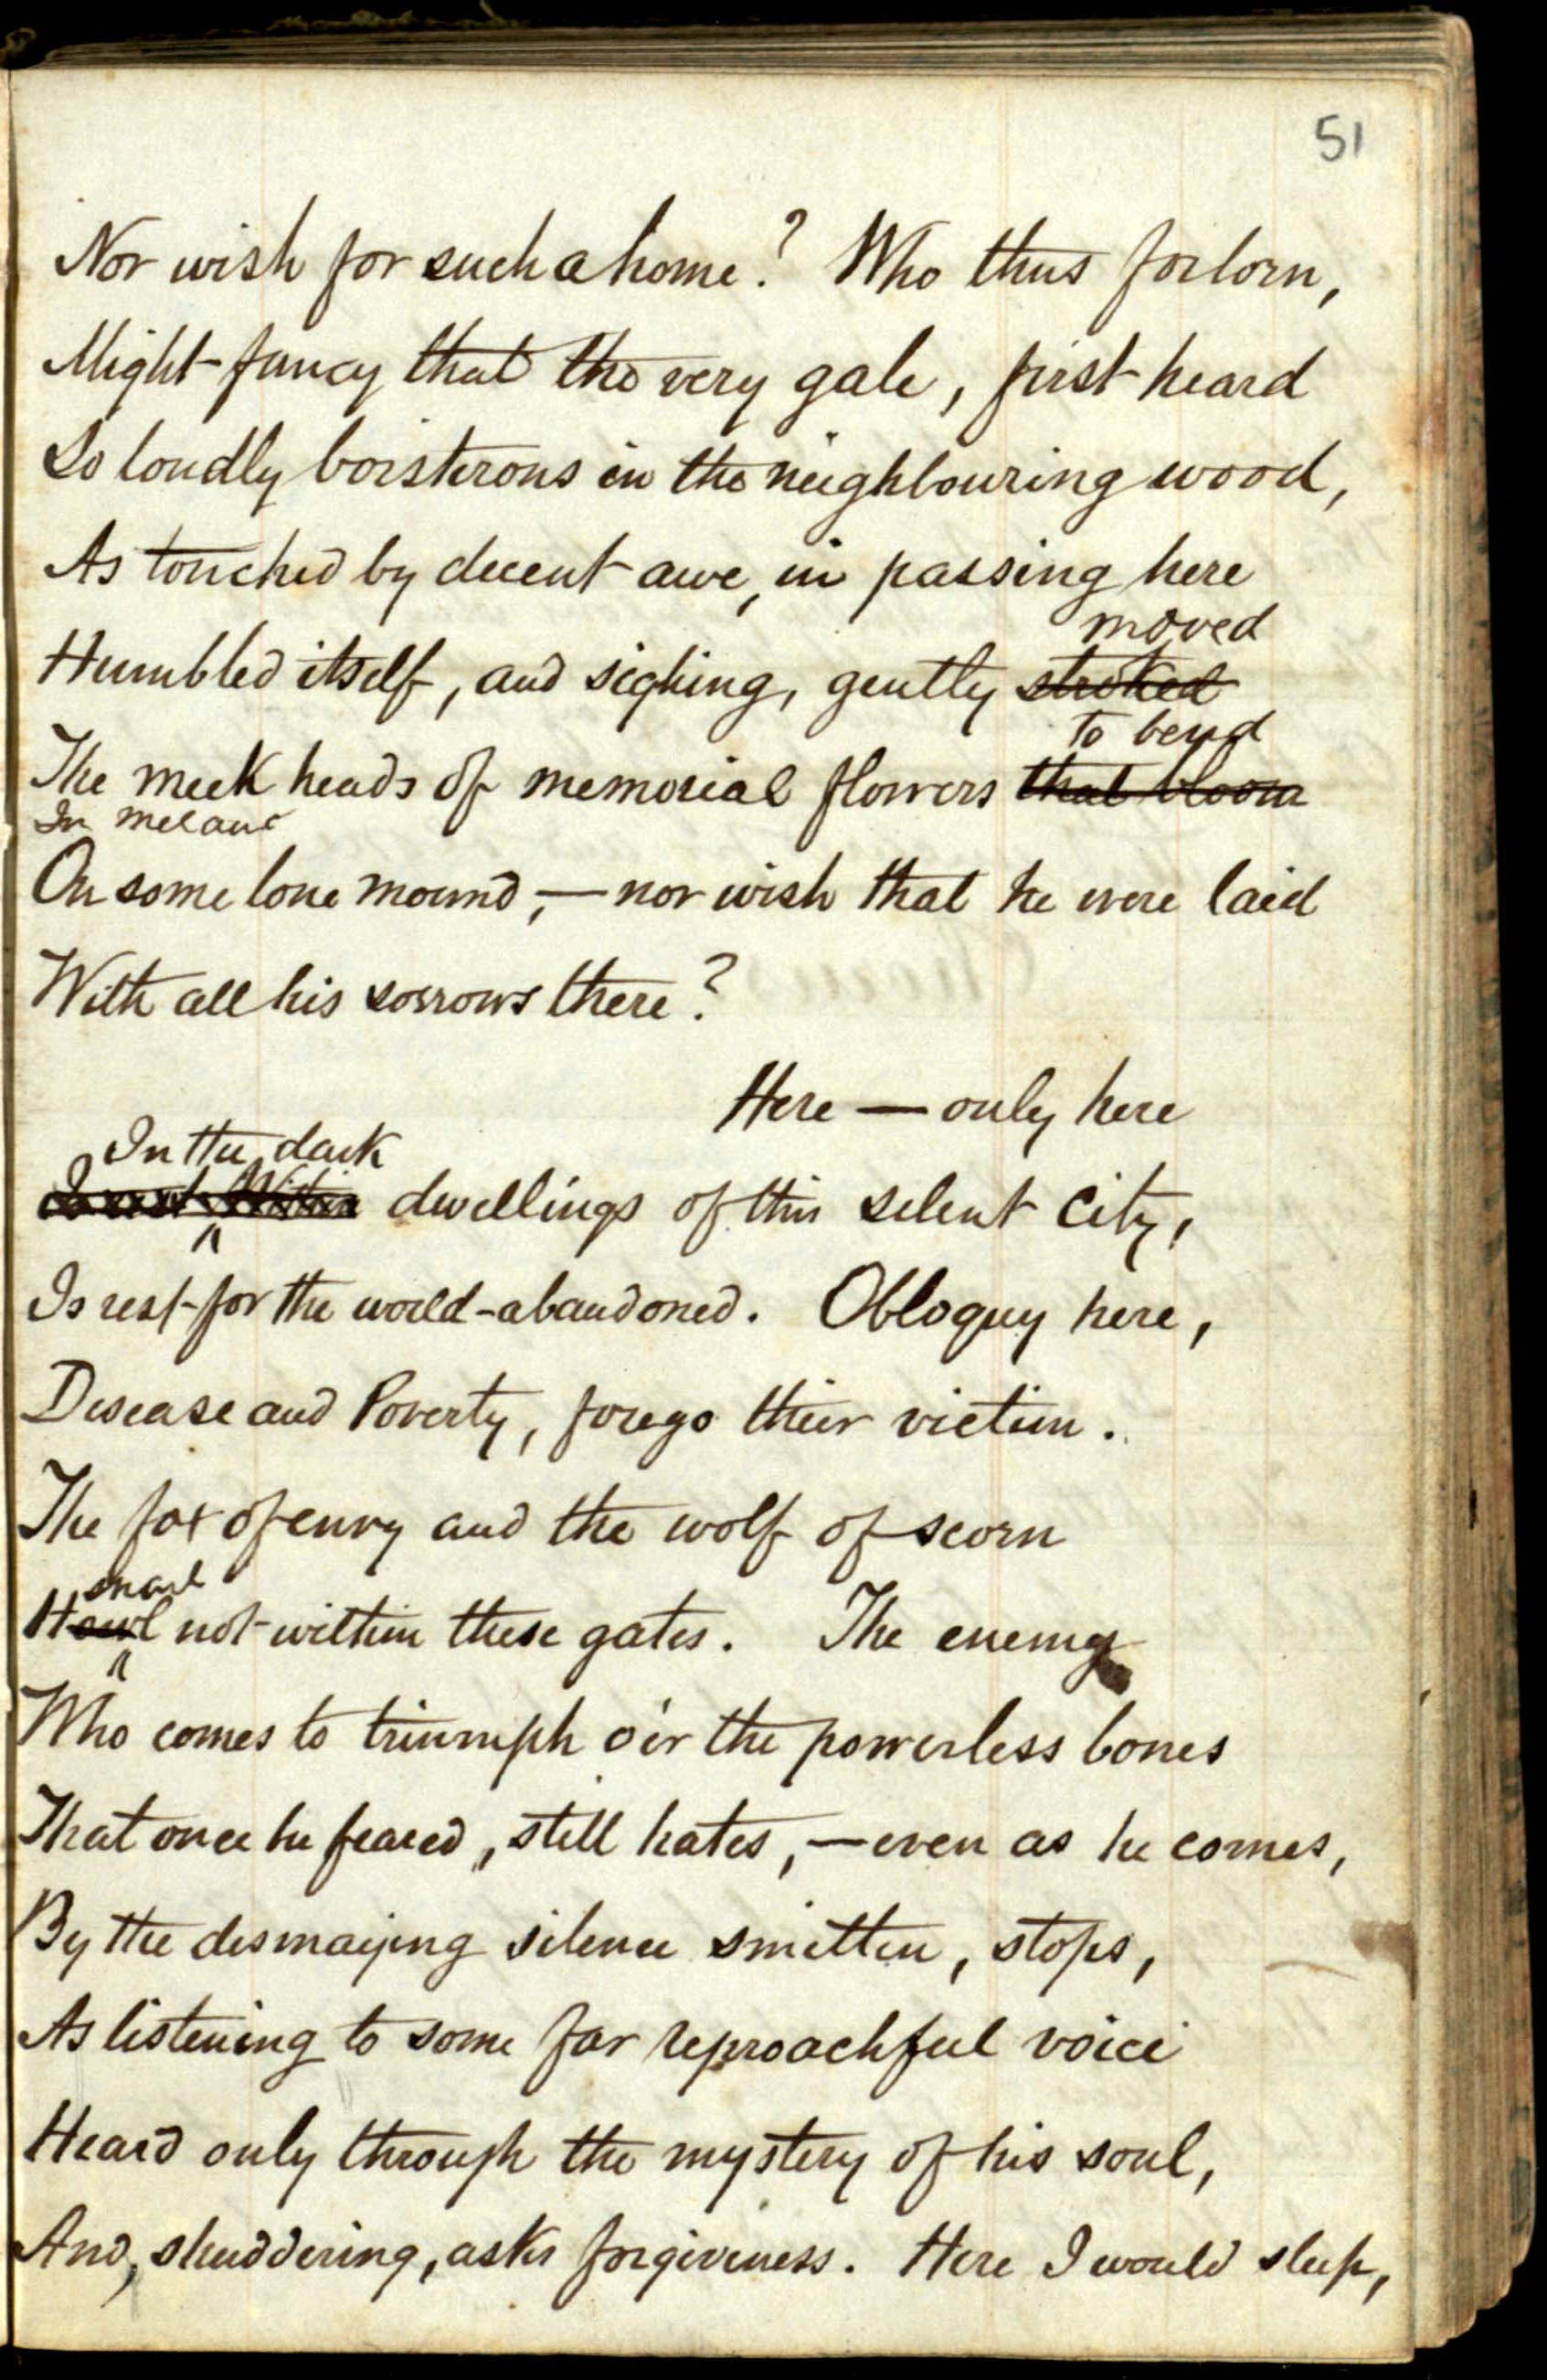 51
Nor wish for such a home? Who thus forlorn,
Might fancy that the very gale, first heard
So loudly boisterous in the neighbouring wood,
As touched by decent awe, in passing here
moved
Humbled itself, and sighing, gently stroked
to bend
The meek heads of memorial flowers that bloom
In
On some lone mound,—nor wish that he were laid
With all his sorrows there?
Here — only here
In the dark
Within dwellings of this silent City,
Is rest for the world-abandoned. Obloquy here,
Disease and Poverty, forego their victim.
The fox of envy and the wolf of scorn
snarl
Howl not within these gates. The enemy
Who comes to triumph o'er the powerless bones
That once he feared, still hates,—even as he comes,
By the dismaying silence smitten, stops,
As listening to some far reproachful voice
Heard only through the mystery of his soul,
And, shuddering, asks forgiveness. Here I would sleep,